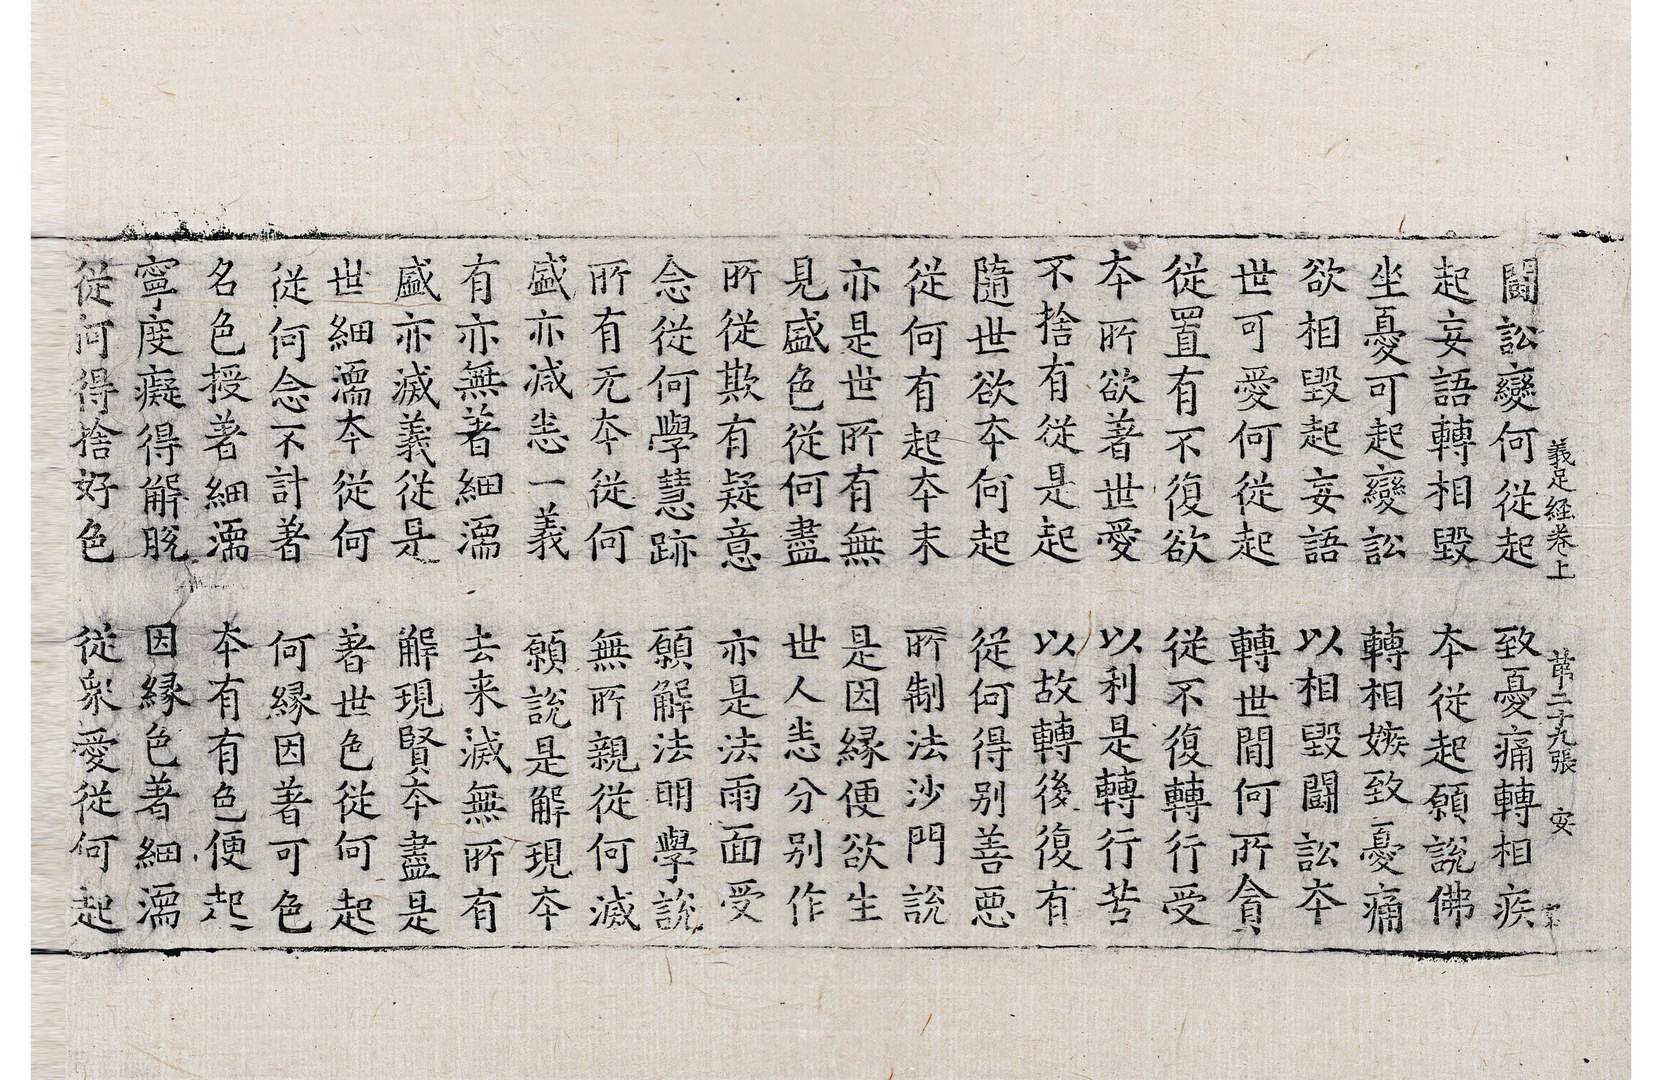 義足経卷上　第二十九張　安
鬪訟變何從起　致憂痛轉相疾
起妄語轉相毀　本從起願說佛
坐憂可起變訟　轉相嫉致憂痛
欲相毀起妄語　以相毀鬪訟本
世可愛何從起　轉世間何所貪
從置有不復欲　從不復轉行受
本所欲著世愛　以利是轉行苦
不捨有從是起　以故轉後復有
隨世欲本何起　從何得別善惡
從何有起本末　所制法沙門說
亦是世所有無　是因緣便欲生
見盛色從何盡　世人悉分別作
所從欺有疑意　亦是法雨面受
念從何學慧跡　願解法明學說
所有无本從何　無所親從何滅
盛亦減悉一義　願說是解現本
有亦無著細濡　去来滅無所有
盛亦滅義從是　解現賢本盡是
世細濡本從何　著世色從何起
從何念不計著　何緣因著可色
名色授著細濡　本有有色便起
寧度癡得解脫　因緣色著細濡
從何得捨好色　從眾愛從何起